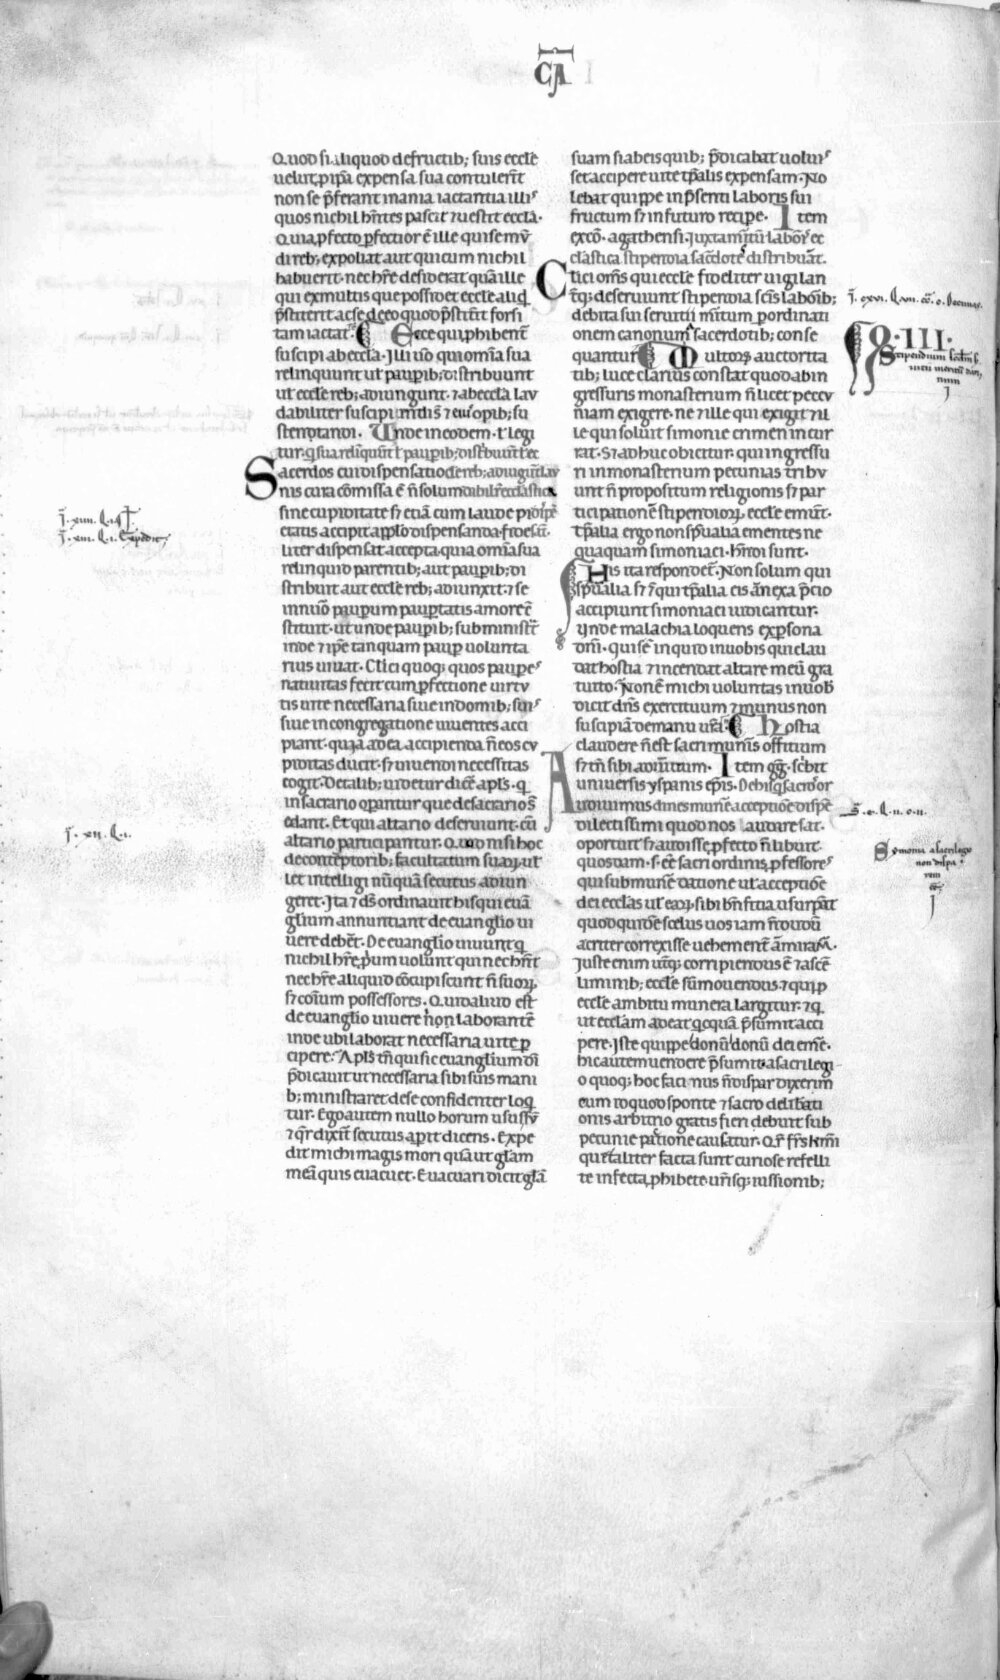 CA
Quod si aliquod de fructib; suis eccle
uelut p̱ ip̄a expensa sua contulerīt
non se p̄ferant inania iactantia illis
quos nichil hn̄tes pascit ⁊ uestit eccła.
Quia p̱fecto p̱fectior ē ille qui se mū
di reb; expoliat aut qui cum nichil
habuerit. nec hr̄e desiderat quā ille
qui ex multis que possidet eccle aliq̇d
p̄stiterit ac se de eo quod p̄stitit forsi
tam iactat. Ecce qui p̱hibent̄
suscipi ab eccła. Illi ūo qui omīa sua
relinquunt uł paup̱ib; distribuunt
uł eccle reb; adiungunt. ⁊ ab eccła lau
dabiliter suscipi
stentandi. Vnde in eodem. ł legi
tur. q̇ sua relinquūt ł paup̱ib; distribuunt ł ec
Sacerdos cui dispensatio cle reb; adiungūt lau
nis cura cōmissa ē n̄ solum dabilr̄ ecclastica
sine cupiditate sꝫ etiā cum laude pi
etatis accipit a pp̄lo dispensanda ⁊ fide
liter dispensat accepta. quia omīa sua
relinquid parentib; aut paup̱ib; di
stribuit aut eccle reb; adiunxit. ⁊ se
in nūo paup̱um paup̱tatis amore c̄
stituit. ut unde paup̱ib; subministrat
inde ⁊ ip̄e tanquam paup̱ volunta
rius uiuat. Cl̄ici quoq; quos paupes
natiuitas fecit cum p̱fectione uirtu
tis uite necessaria siue in domib; suis
siue in congregatione uiuentes acci
piunt. quia ad ea accipienda n̄ eos cu
piditas ducit. sꝫ uiuendi necessitas
cogit. De talib; uidetur dicē apl̄s. q̇
in sacrario op̱antur que de sacrario s̄
edant. Et qui altario deseruiunt. cū
altario participantur. Quod nisi hoc
de contēptorib; facultatum suaꝝ uel
let intelligi nūquā secutus adiun
geret. Ita ⁊ ds̄ ordinauit his qui euā
glium annuntiant de euanglio ui
uere debēt. De euanglio uiuunt q̇
nichil hr̄e p̱rium uolunt qui nec hn̄t
nec hr̄e aliquid cōcupiscunt n̄ suoꝝ
sꝫ coīum possessores. Quid aliud est
de euanglio uiuere n̄ non laborantē
inde ubi laborat necessaria uite p̱
cipere. Apl̄s tm̄ qui sic euanglium dī
p̄dicauit ut necessaria sibi suis mani
b; ministraret de se confidenter loq̇
tur. Ego autem nullo horum usus sū
⁊ q̄r dixit secutus ap̱it dicens. Expe
dit michi magis mori quā ut glam
meā quis euacuet. Euacuari dicit glā
suam si ab eis quib; p̄dicabat uoluis
set accipere uite tp̱alis expensam. No
lebat quippe in p̄senti laboris sui
fructum sꝫ in futuro recipe. Item
ex cō. agathensi. Iuxta mitū labor̄ ec
clastica stipendia sacdote distribuāt.
Cl̄ici om̄s qui eccle fideliter uigilan
tq; deseruiunt stipendia scīs laborib;
debita sui seruitii m̄itum p̱ ordinati
onem canonum sacerdotib; conse
quantur. Multoꝝ auctorita
tib; luce clarius constat quod ab in
gressuris monasterium n̄ licet pecu
niam exigere. ne ⁊ ille qui exigit ⁊ il
le qui soluit simonie crimen incur
rat. Sꝫ adhuc obicitur. qui ingressu
ri in monasterium pecunias tribu
unt n̄ propositum religionis sꝫ par
ticipationē stipendioꝝ eccle emunt.
Tp̱alia ergo non sp̄ualia ementes ne
quaquam simoniaci hn̄di sunt.
His ita respondet̄. Non solum qui
sp̄ualia sꝫ ⁊ qui tp̱alia eis ānexa p̄cio
accipiunt simoniaci iudicantur.
Vnde malachia loquens ex p̱sona
dn̄i. Quis ē inquid in uobis qui clau
dat hostia ⁊ incendat altare meū gra
tuito. Non ē michi uoluntas in uob
dicit dn̄s exercituum ⁊ munus non
suscipiā de manu ur̄a. Hostia
claudere n̄ est sacri muneris offitium
sꝫ tn̄ sibi adiūctum. Item gg̱. scbit
uniuersis yspanis ep̄is. De his q̇ sacri or
Audiuimus dines munēe acceptiōe dispē
dilectissimi quod nos laudare sat.
oportuit sꝫ audisse p̱fecto n̄ libuit.
quosdam .s. ēē sacri ordinis p̱fessores
qui sub munēe datione uł acceptiōe
dei ecclas uł eaꝝ sibi bn̄fitia usurpāt
quod quidē scelus uos iam n̄dudū
acriter correxisse uehement̄ āmiramur.
Iuste enim utq; corripiendus ē ⁊ a scē
liminib; eccle sūmouendus ⁊ qui p̱
eccle ambitu munera largitur. ⁊ q̇
ut ecclam adeat q̇cquā p̄sumit acci
pere. Iste quippe donū donū dei eme.
hic autem uendere p̄sumit. a sacrilegi
o quoq; hoc facinus n̄ dispar dixerim
eum id quod sponte ⁊ sacro delibati
onis arbitrio gratis fieri debuit sub
pecunie pactione causatur. Qr̄ frs̄ km̄i
que taliter facta sunt curiose refelli
te infecta p̱hibete un̄sq; iussionib;
j̄. xvi. q. vii. c. o. Decimas.
III.
Stipendium
j̄. xiii. q. i.
j̄. xii. q. i. Expedit
j̄. xii. q. i.
s̄. e. q. ii. o. n.
Symonia a sacrilegio
non dispa
rem